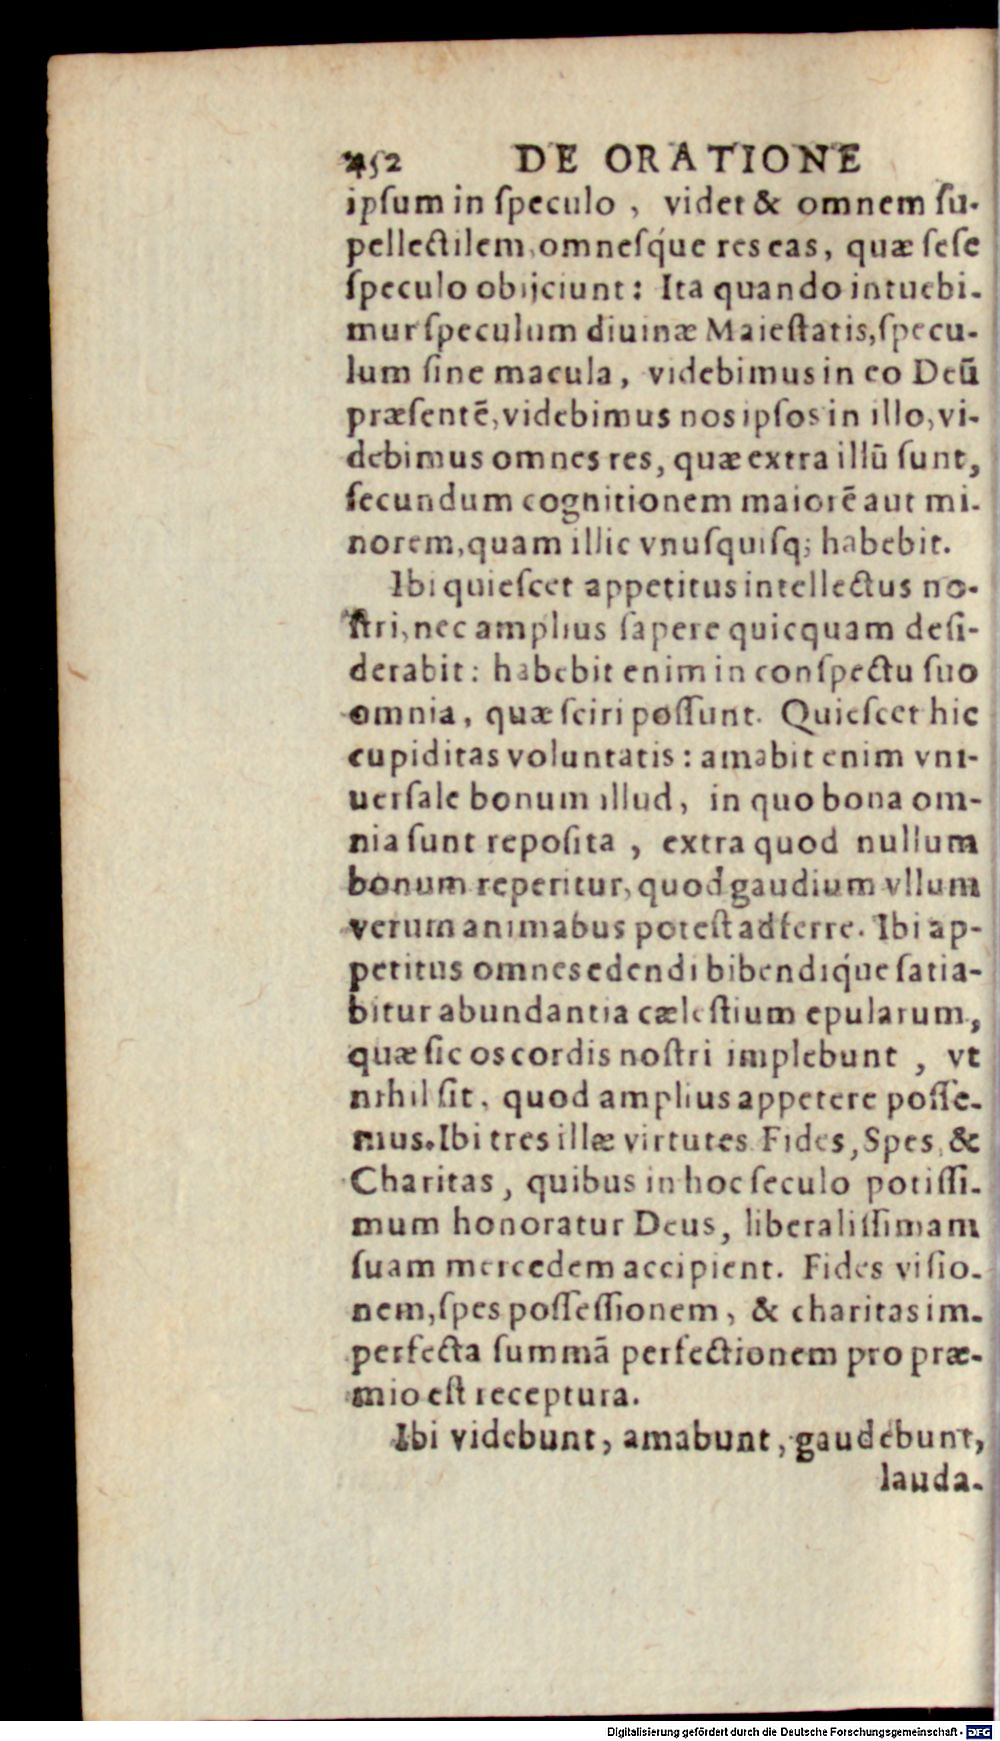 452 DE ORATIONE
ipſum in ſpeculo , videt & omnem ſu-
pellectilem, omneſq́ue res eas, quæ ſeſe
ſpeculo obijciunt: Ita quando intuebi-
mur ſpeculum diuinæ Maieſtatis, ſpecu-
lum ſine macula, videbimus in eo Deū
præſentē, videbimus nos ipſos in illo, vi-
debimus omnes res, quæ extra illū ſunt,
ſecundum cognitionem maiorē aut mi-
norem, quam illic vnuſquiſq; habebit.
Ibi quieſcet appetitus intellectus no-
ſtri, nec amplius ſapere quicquam deſi-
derabit: habebit enim in conſpectu ſuo
omnia, quæ ſciri poſſunt. Quieſcet hic
cupiditas voluntatis: amabit enim vni-
uerſale bonum illud, in quo bona om-
nia ſunt repoſita , extra quod nullum
bonum reperitur, quod gaudium vllum
verum animabus poteſt adferre. Ibi ap-
petitus omnes edendi bibendiq́ue ſatia-
bitur abundantia cæleſtium epularum,
quæ ſic os cordis noſtri implebunt , vt
nihil ſit, quod amplius appetere poſſe-
mus. Ibi tres illæ virtutes Fides, Spes, &
Charitas, quibus in hoc ſeculo potiſſi-
mum honoratur Deus, liberaliſſimam
ſuam mercedem accipient. Fides viſio-
nem, ſpes poſſeſſionem, & charitas im-
perfecta ſummā perfectionem pro præ-
mio eſt receptura.
Ibi videbunt, amabunt, gaudebunt,
lauda-
Digitalisierung gefördert durch die Deutsche Forschungsgemeinschaft - DFG